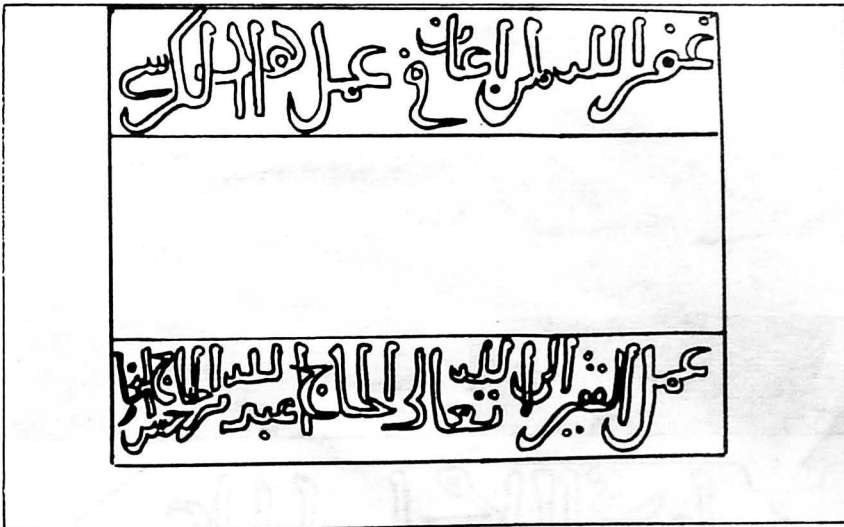 غفر الله لمن اعان في عمل هذا الكرسي
عمل الفقير الى الله تعالى الحاج عبد الله الحاج